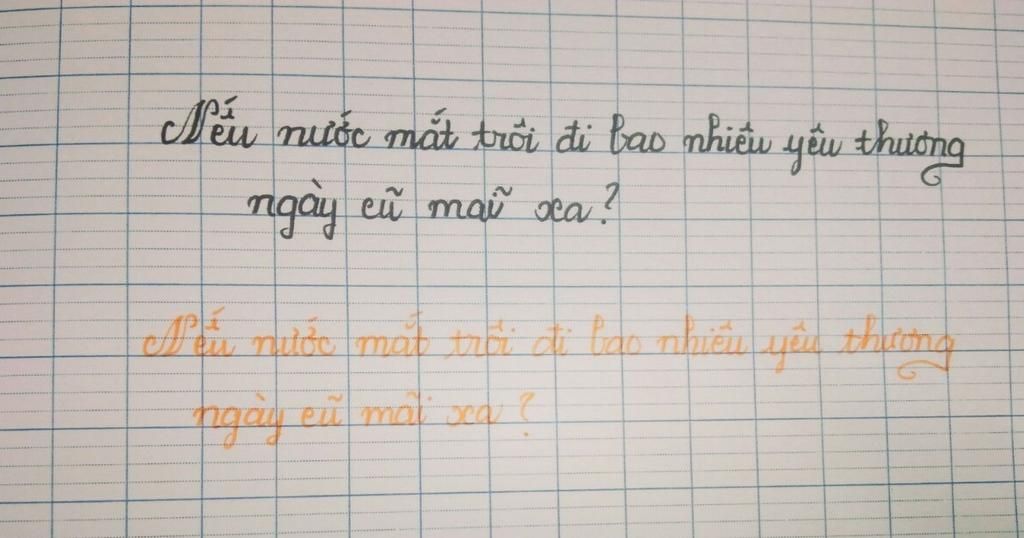 Nếu nước mắt trôi đi bao nhiêu yêu thương
ngày cũ mãi xa?
Nếu nước mắt trôi đi bao nhiêu yêu thương
ngày cũ mãi xa?